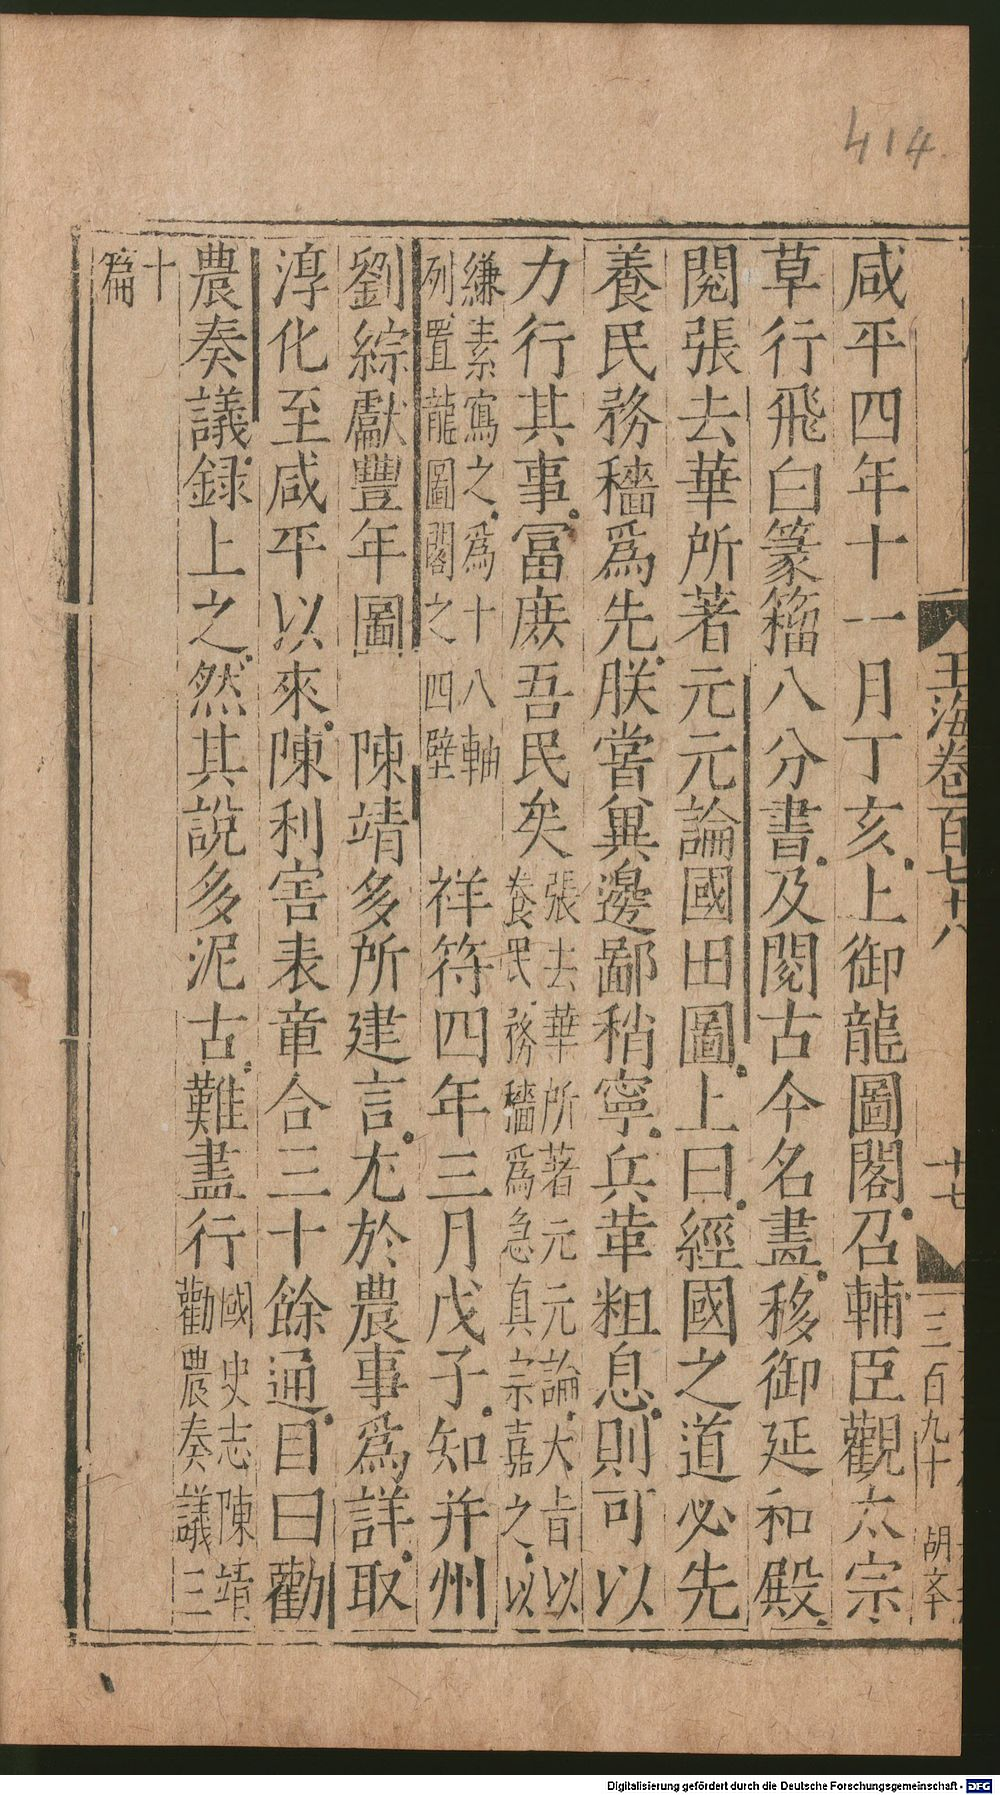 414
玉海卷百七十八
十七
三百九十
胡文
咸平四年十一月丁亥上御龍圖閣召輔臣觀太宗
草行飛白篆籀八分書及閱古今名畫移御延和殿
閱張去華所著元元論國田圖上曰經國之道必先
養民務穡爲先朕嘗異邊鄙稍寧兵革粗息則可以
力行其事冨庶吾民矣
張去華所著元元論大旨以
養民務穡爲急真宗嘉之以
縑素寫之爲十八軸
列置龍圖閣之四壁
祥符四年三月戊子知并州
劉綜獻豐年圖　陳靖多所建言尤於農事爲詳取
淳化至咸平以來陳利害表章合三十餘通目曰勸
農奏議録上之然其說多泥古難盡行
國史志陳靖
勸農奏議三
十
篇
Digitalisierung gefördert durch die Deutsche Forschungsgemeinschaft - DFG